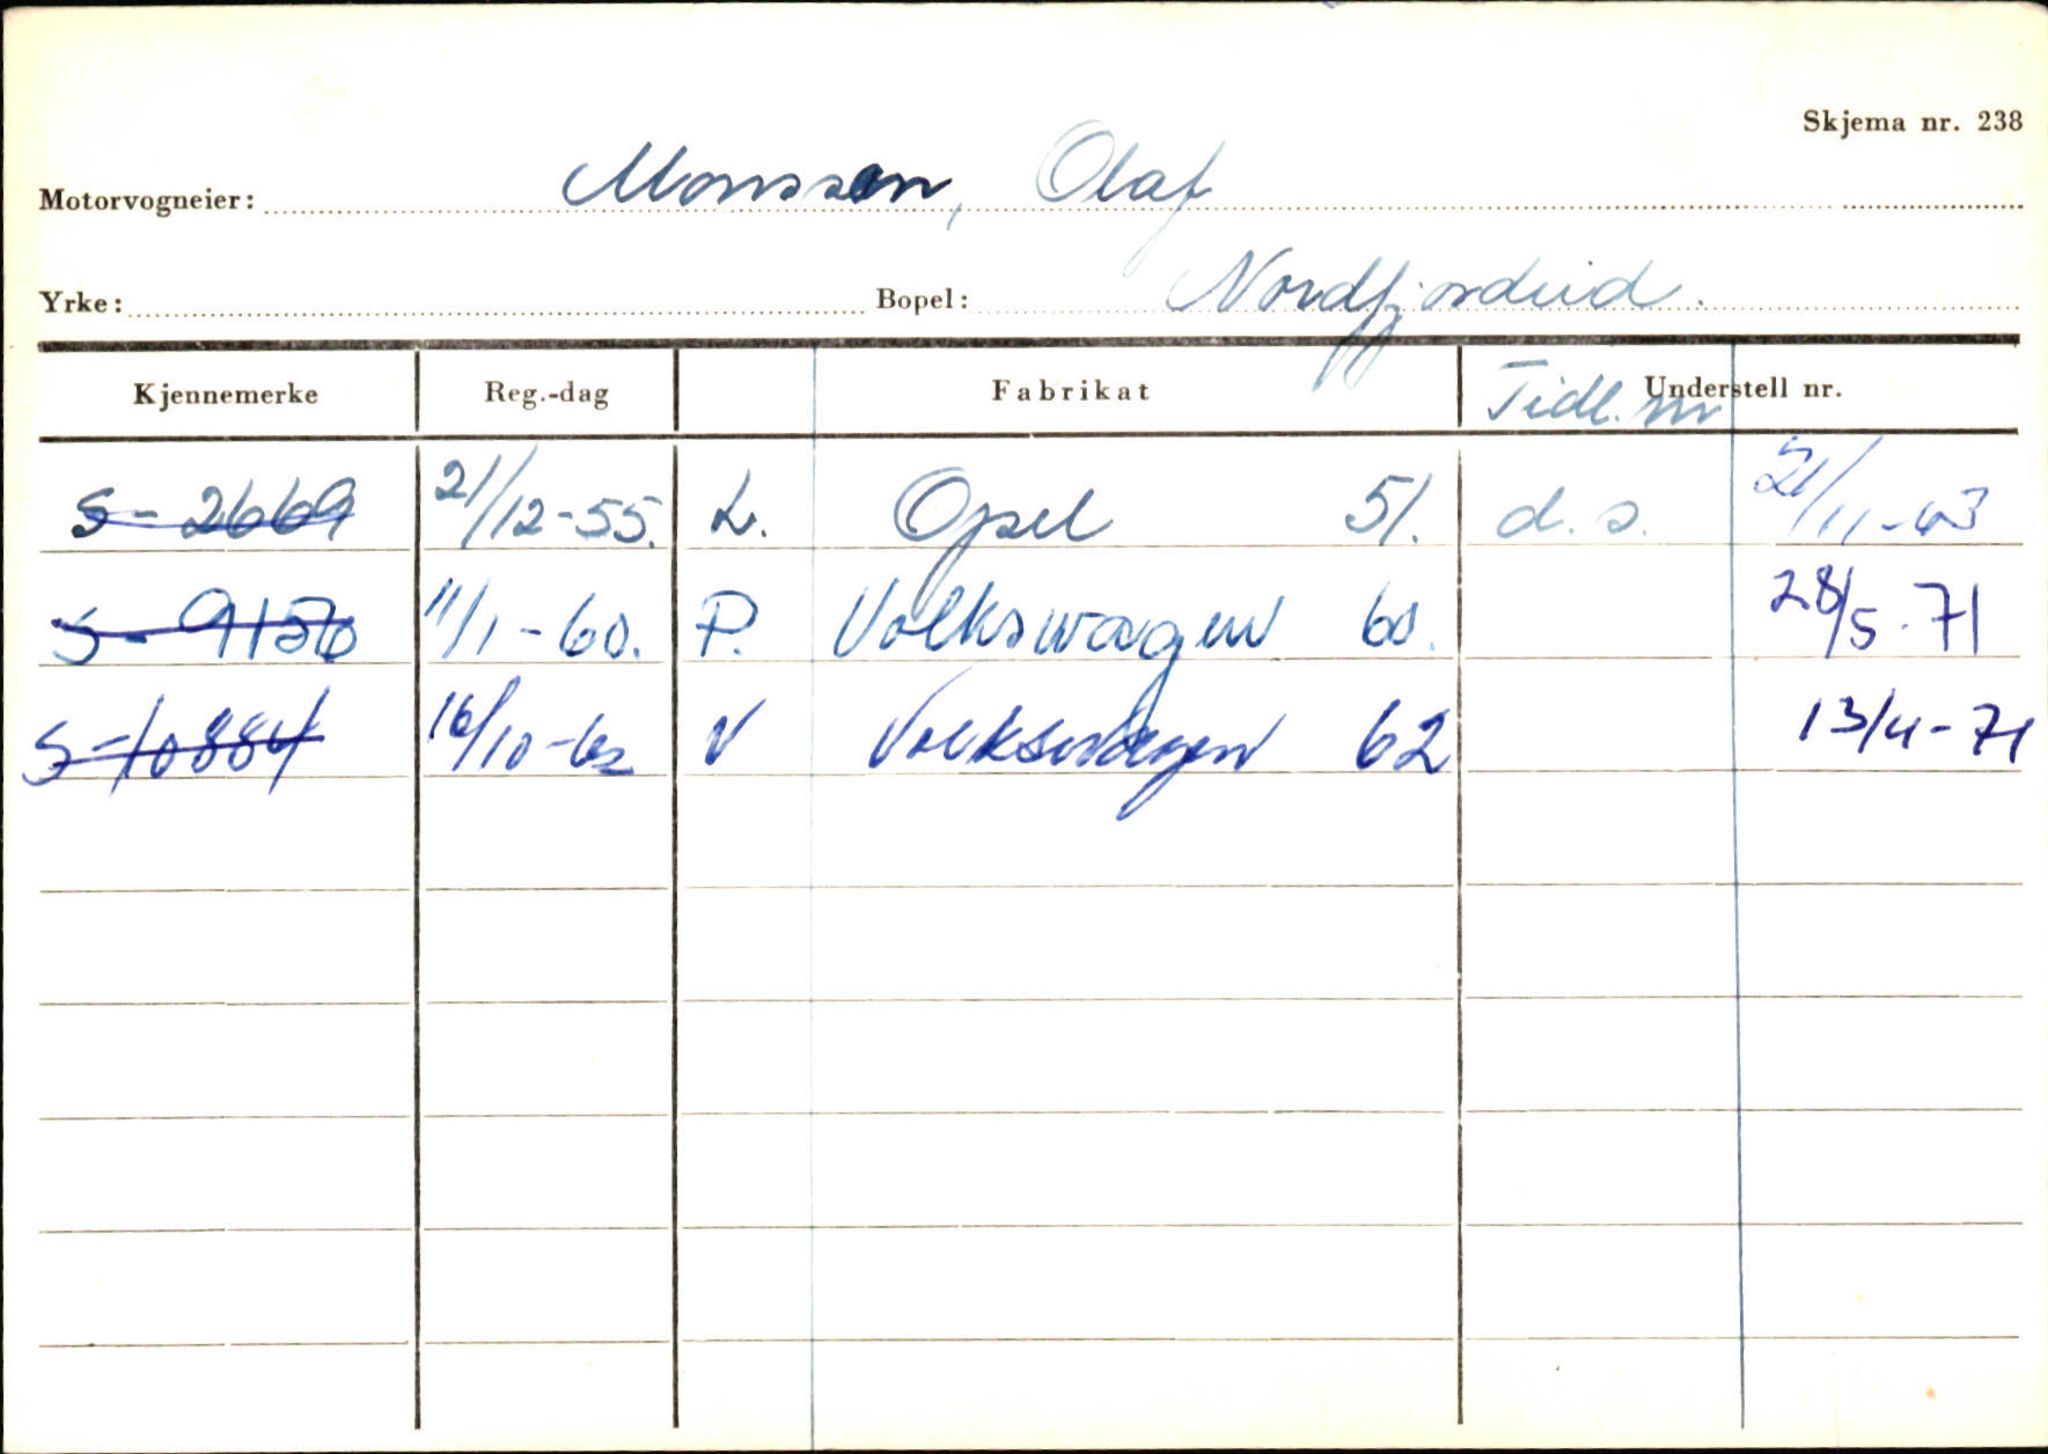 Skjema nr. 238
Motorvogneier: Monssen, Olaf
Yrke: Bopel: Nordfjordeid.
Kjennemerke Reg.-dag Fabrikat Tidl. nr Understell nr.
S-2669 21/12-55. L. Opel 51. d.s. 21/11-63
S-9156 11/1-60. P. Volkswagen 60. 28/5-71
S-10884 16/10-62 V Volkswagen 62 13/4-71